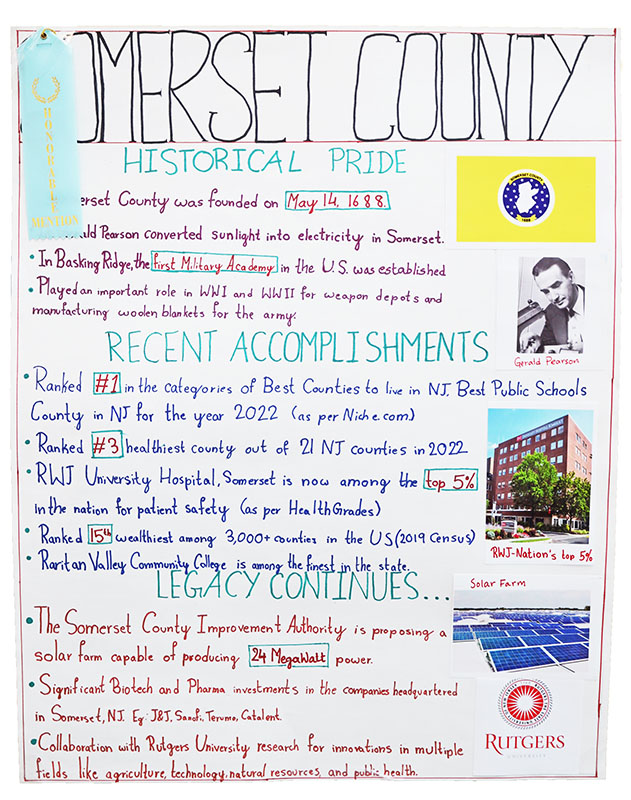 OMERSET COUNTY
HONORABLE
MENTION
HISTORICAL PRIDE
erset County was founded on May 14, 1688.
SOMERSET COUNTY
1688
ld Pearson converted sunlight into electricity in Somerset.
• In Basking Ridge, the first Military Academy in the U.S. was established
• Played an important role in WWI and WWII for weapon depots and
manufacturing woolen blankets for the army.
Gerald Pearson
RECENT ACCOMPLISHMENTS
• Ranked #1 in the categories of Best Counties to live in NJ, Best Public Schools
County in NJ for the year 2022 (as per Niche.com)
• Ranked #3 healthiest county out of 21 NJ counties in 2022
• RWJ University Hospital, Somerset is now among the top 5%
in the nation for patient safety (as per HealthGrades)
• Ranked 15th wealthiest among 3,000+ counties in the US (2019 Census)
• Raritan Valley Community College is among the finest in the state.
RWJ-Nation's top 5%
LEGACY CONTINUES...
Solar Farm
• The Somerset County Improvement Authority is proposing a
solar farm capable of producing 24 MegaWatt power.
• Significant Biotech and Pharma investments in the companies headquartered
in Somerset, NJ. Eg: J&J, Sanofi, Terumo, Catalent.
• Collaboration with Rutgers University research for innovations in multiple
fields like agriculture, technology, natural resources, and public health.
RUTGERS
UNIVERSITY